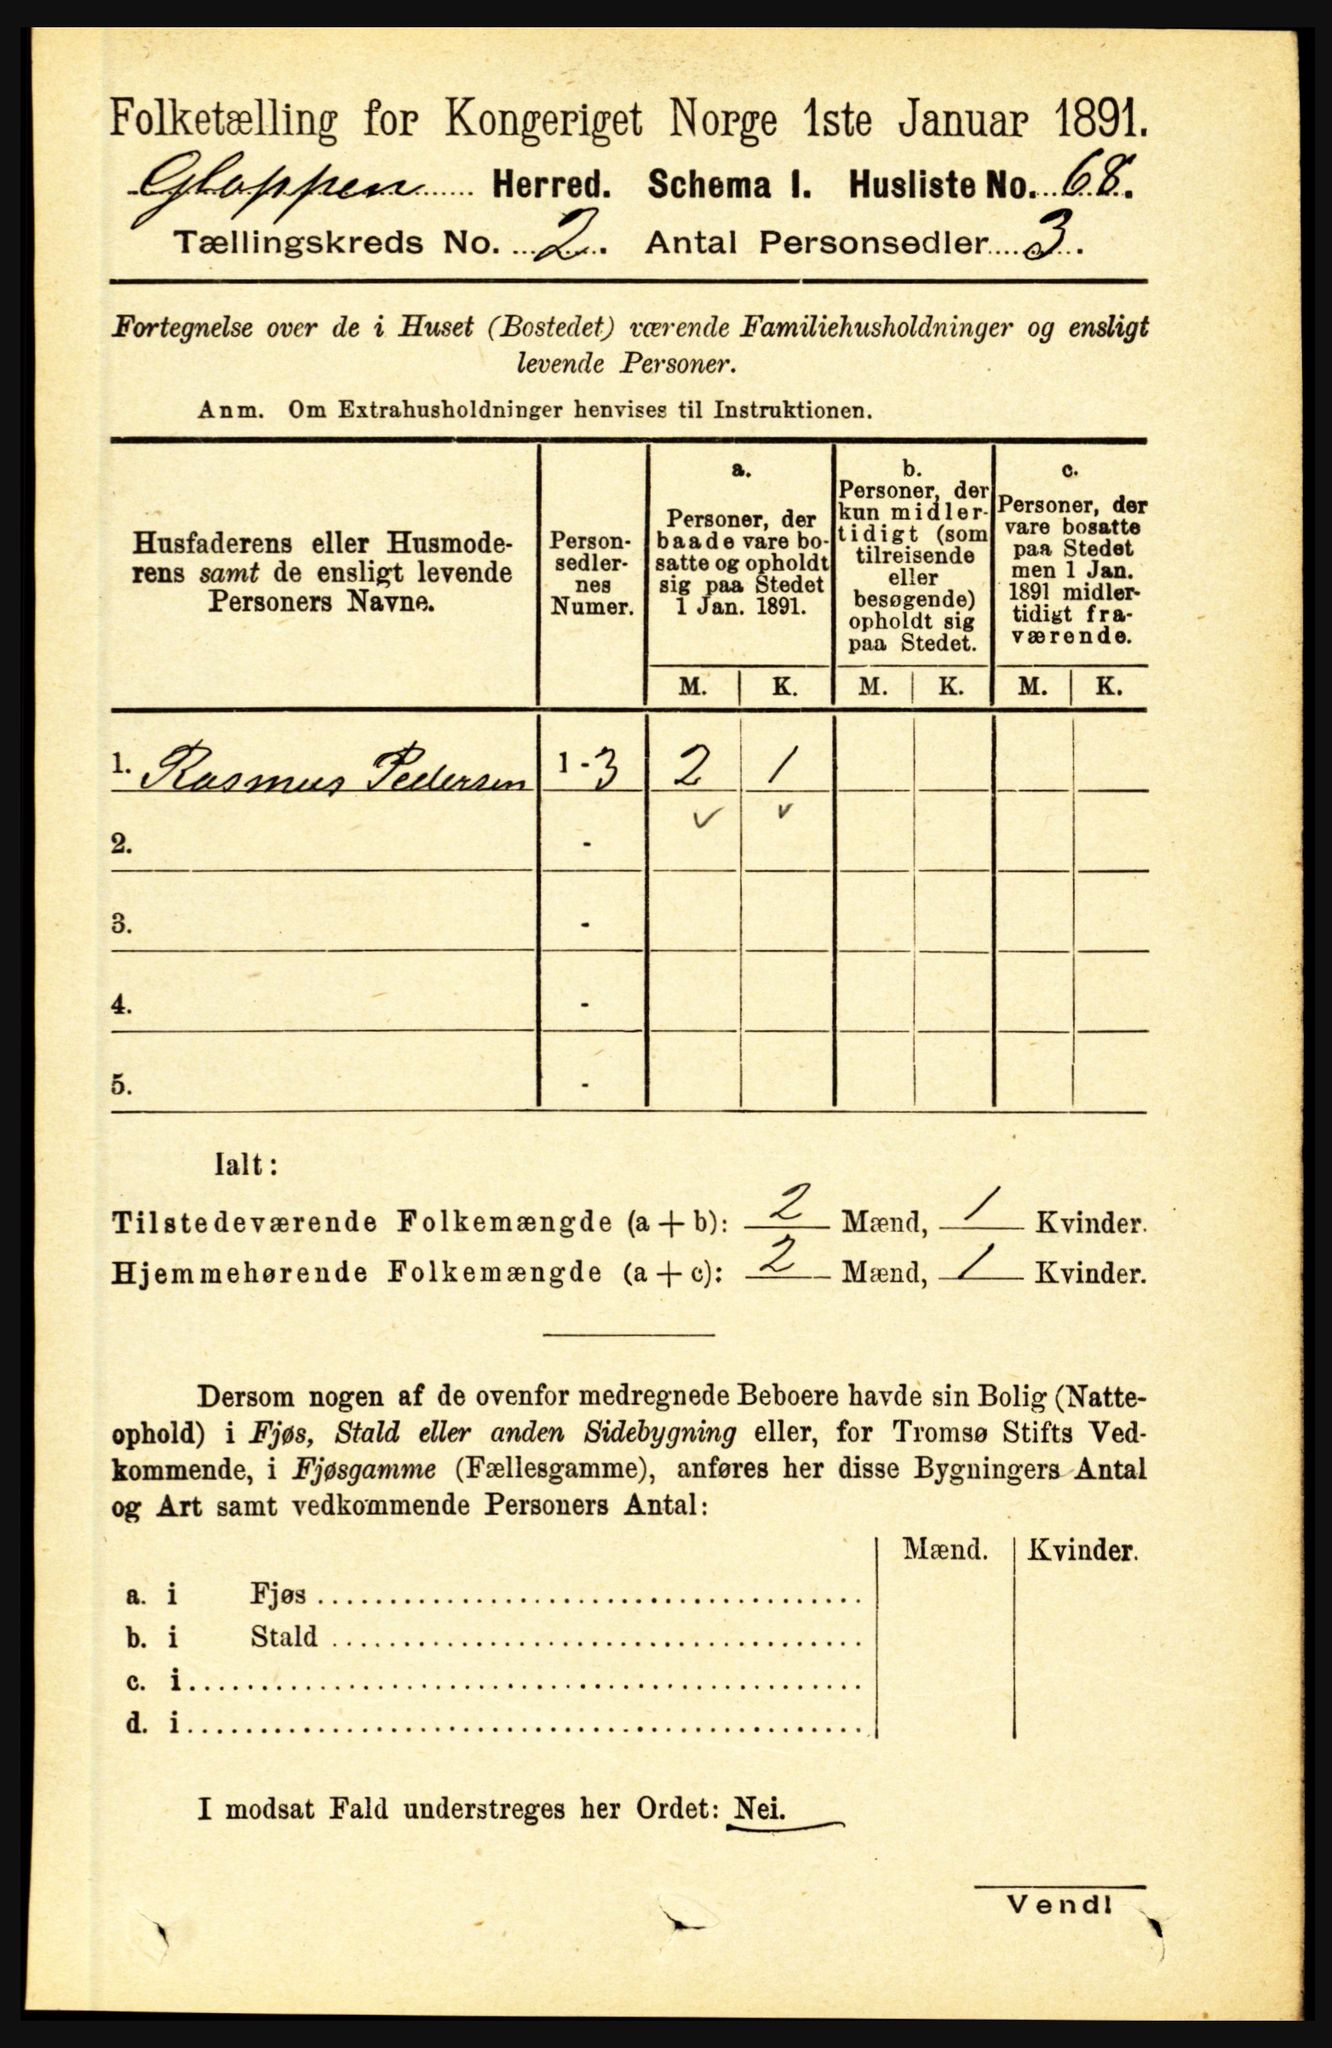 Folketælling for Kongeriget Norge 1ste Januar 1891.
Gloppen Herred. Schema I. Husliste No. 68.
Tællingskreds No. 2. Antal Personsedler 3.
Fortegnelse over de i Huset (Bostedet) værende Familiehusholdninger og ensligt
levende Personer.
Anm. Om Extrahusholdninger henvises til Instruktionen.
Husfaderens eller Husmode-
rens samt de ensligt levende
Personers Navne.
Person-
sedler-
nes
Numer.
a.
Personer, der
baade vare bo-
satte og opholdt
sig paa Stedet
1 Jan. 1891.
b.
Personer, der
kun midler-
tidigt (som
tilreisende
eller
besøgende)
opholdt sig
paa Stedet.
c.
Personer, der
vare bosatte
paa Stedet
men 1 Jan.
1891 midler-
tidigt fra-
værende.
M. K. M. K. M. K.
1. Rasmus Pedersen 1 - 3 2 1
2. -
3. -
4. -
5. -
Ialt:
Tilstedeværende Folkemængde (a + b): 2 Mænd, 1 Kvinder.
Hjemmehørende Folkemængde (a + c): 2 Mænd, 1 Kvinder.
Dersom nogen af de ovenfor medregnede Beboere havde sin Bolig (Natte-
ophold) i Fjøs, Stald eller anden Sidebygning eller, for Tromsø Stifts Ved-
kommende, i Fjøsgamme (Fællesgamme), anføres her disse Bygningers Antal
og Art samt vedkommende Personers Antal:
Mænd. Kvinder.
a. i Fjøs
b. i Stald
c. i
d. i
I modsat Fald understreges her Ordet: Nei.
Vendl